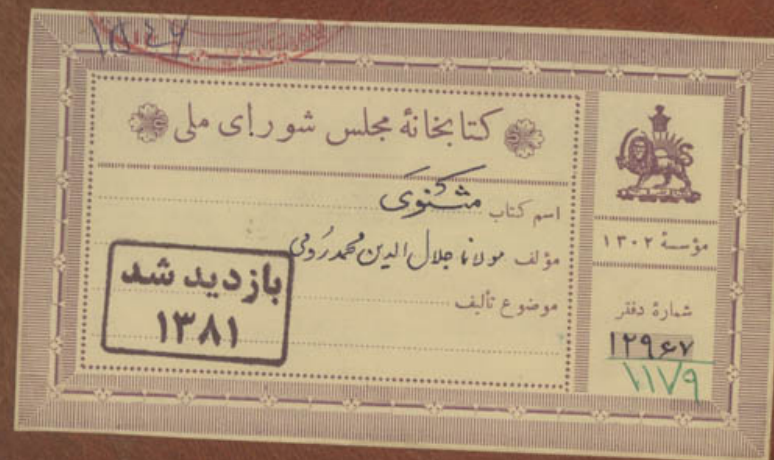 کتابخانهٔ مجلس شورای ملی
اسم کتاب مثنوی
مؤلف مولانا جلال الدین محمد رومی
موضوع تألیف
بازدید شد
۱۳۸۱
مؤسسهٔ ۱۳۰۲
شمارهٔ دفتر
۱۲۹۶۷
۱۱۱۷۹